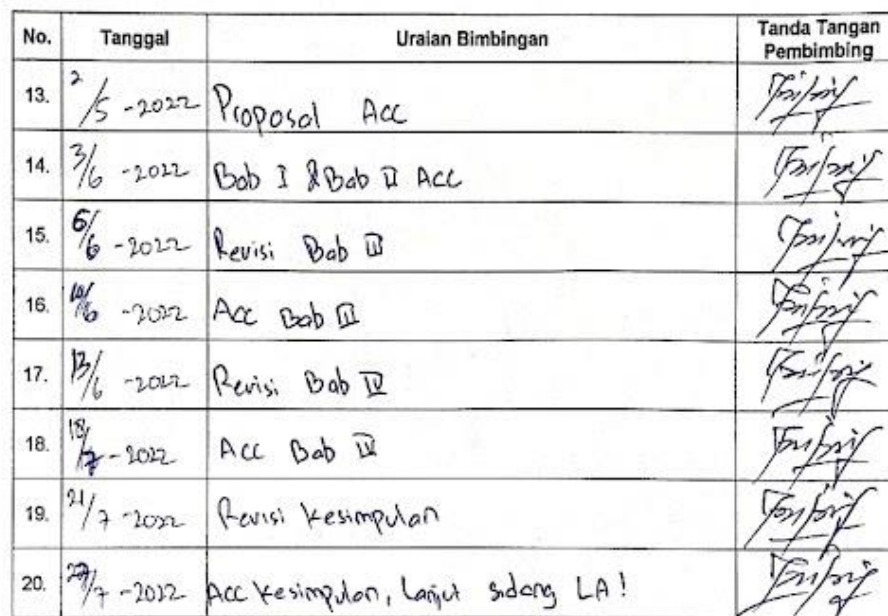 No. Tanggal Uraian Bimbingan Tanda Tangan Pembimbing
13. 2/5 -2022 Proposal Acc
14. 3/6 -2022 Bab I & Bab II Acc
15. 6/6 -2022 Revisi Bab III
16. 10/6 -2022 Acc Bab III
17. 13/6 -2022 Revisi Bab IV
18. 18/7 -2022 Acc Bab IV
19. 21/7 -2022 Revisi Kesimpulan
20. 27/7 -2022 Acc Kesimpulan, Lanjut sidang LA!